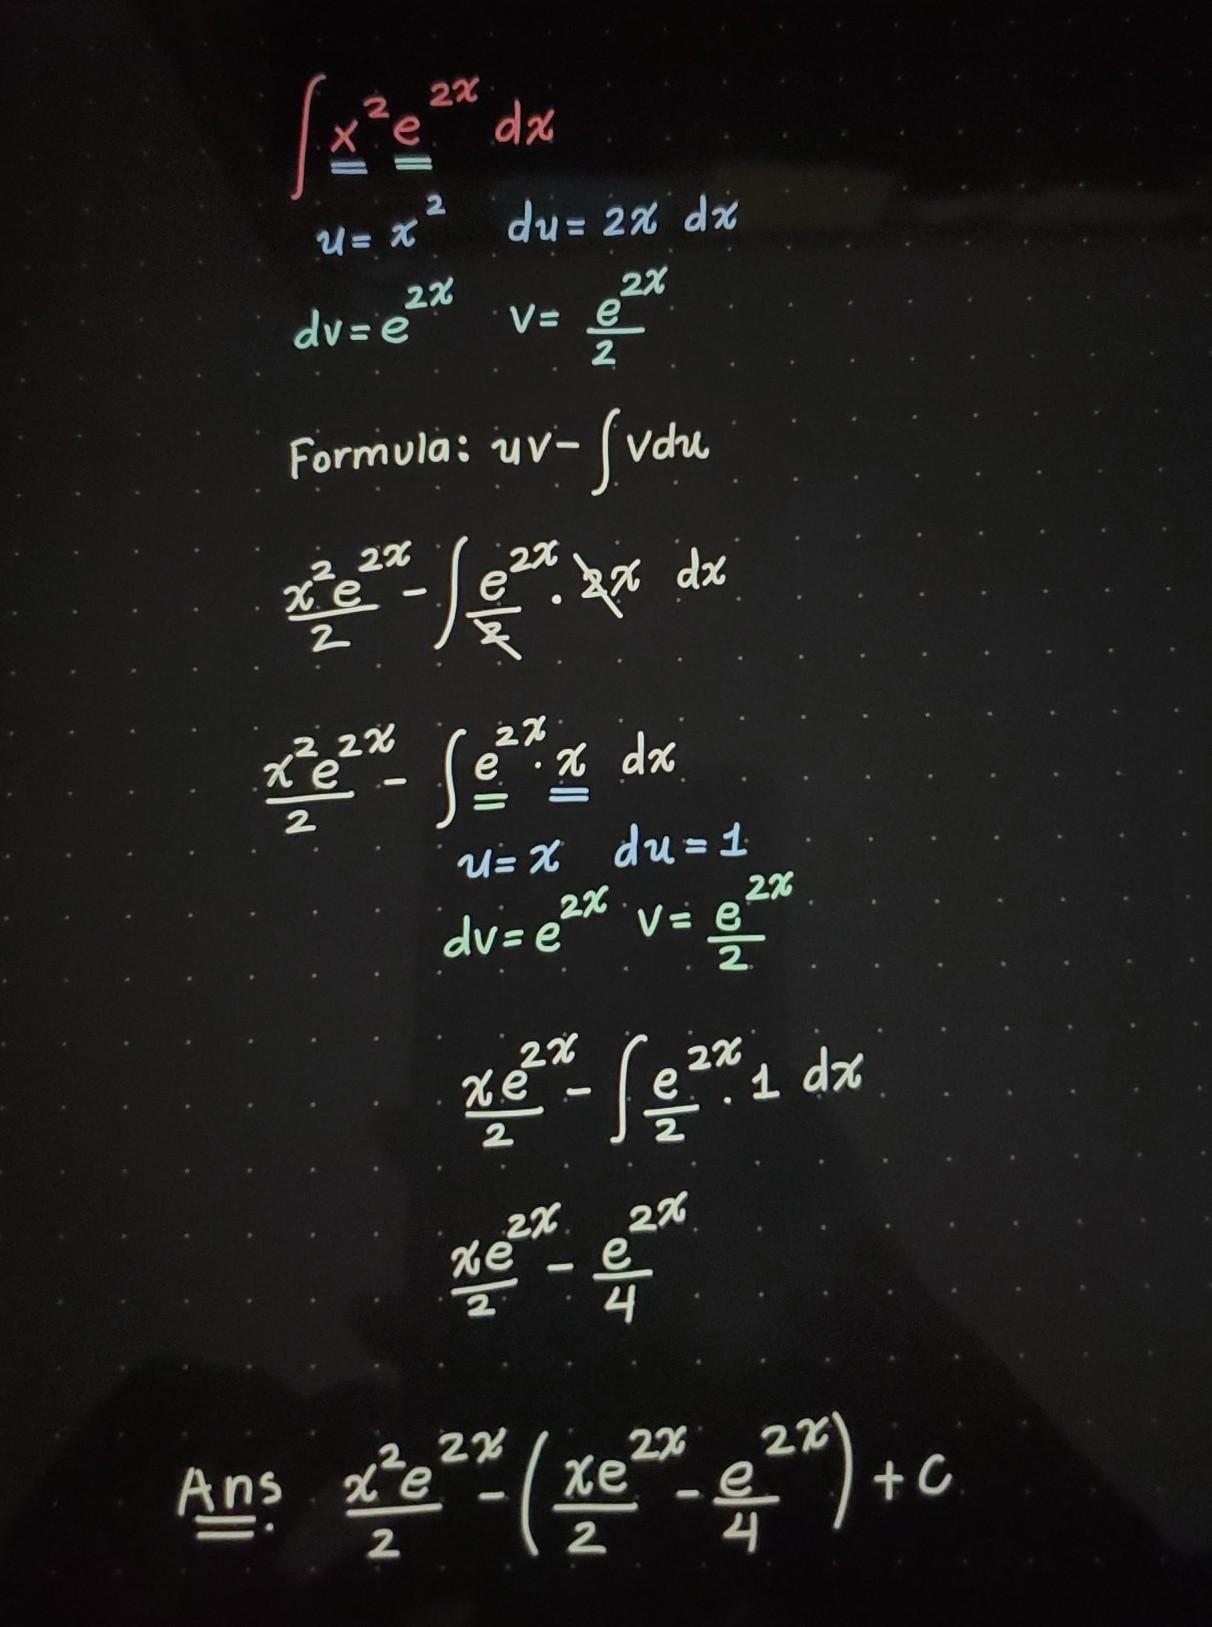 ∫ x²e^{2x} dx
u = x² du = 2x dx
dv = e^{2x} v = e^{2x}/2
Formula: uv - ∫ vdu
x²e^{2x}/2 - ∫ e^{2x}/2 · 2x dx
x²e^{2x}/2 - ∫ e^{2x} · x dx
u = x du = 1
dv = e^{2x} v = e^{2x}/2
xe^{2x}/2 - ∫ e^{2x}/2 · 1 dx
xe^{2x}/2 - e^{2x}/4
Ans. x²e^{2x}/2 - (xe^{2x}/2 - e^{2x}/4) + C